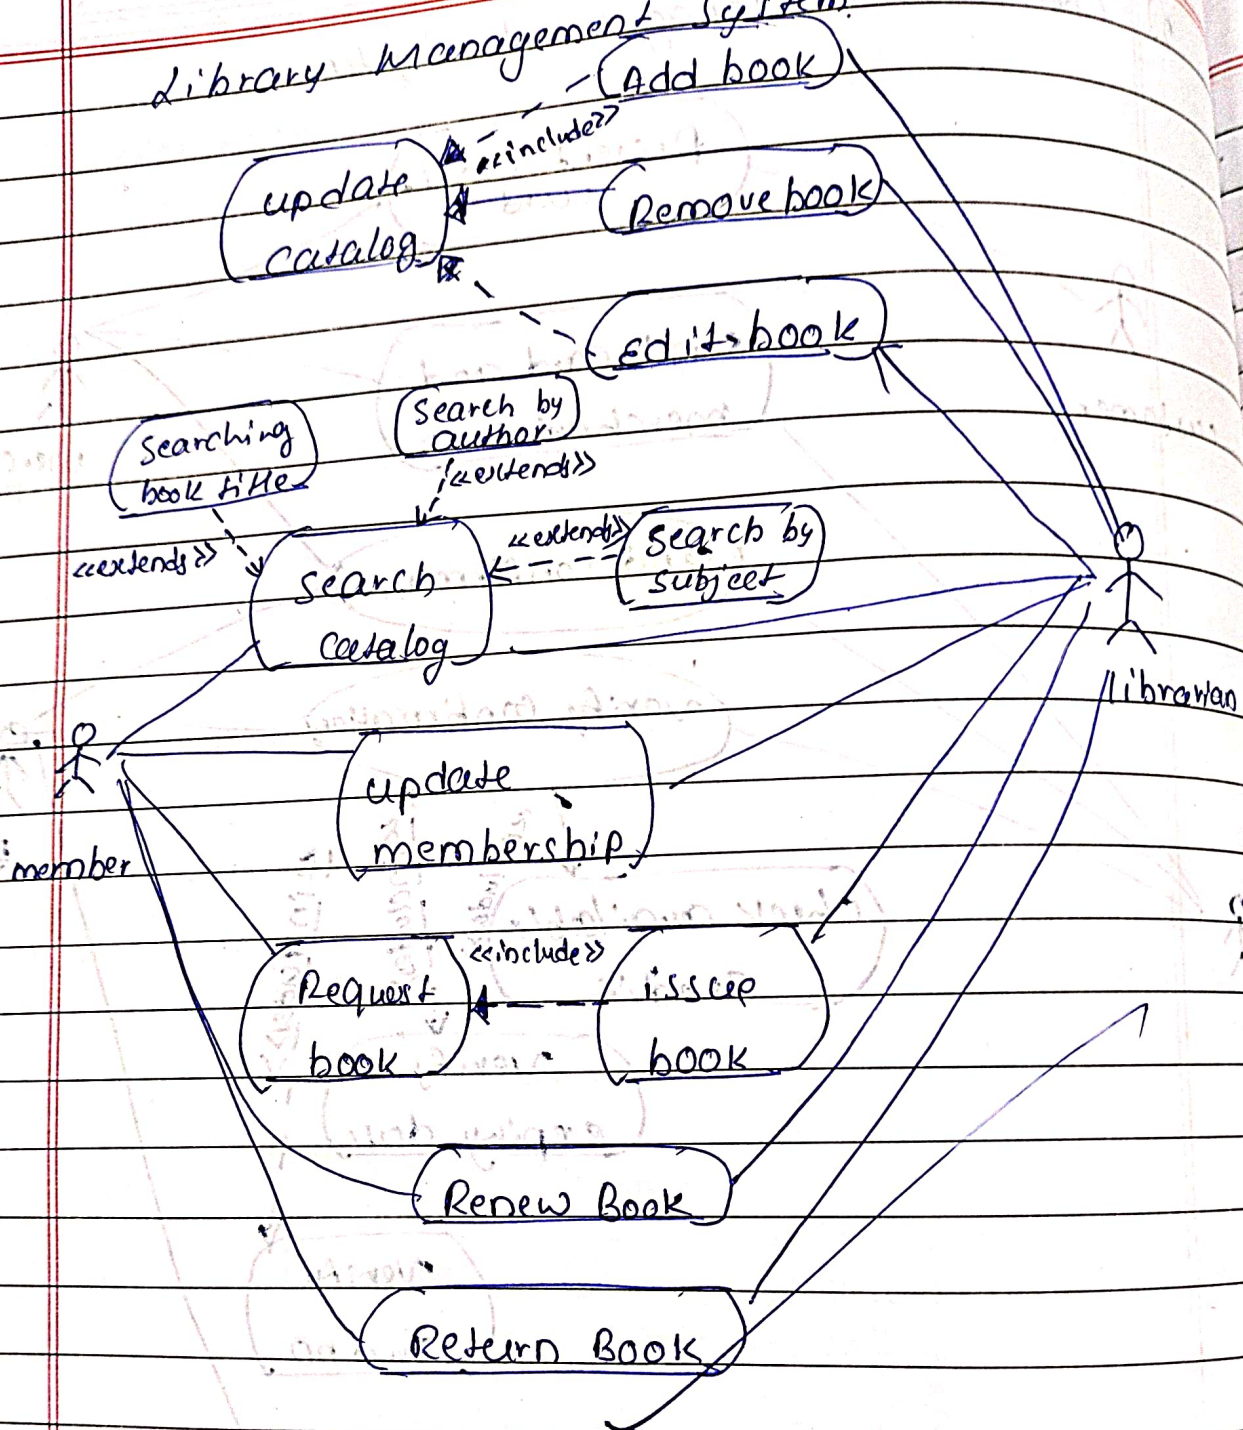 Library Management System
Add book
<<include>>
update
catalog
Remove book
Edit book
Searching
book title
Search by
author
<<extends>>
<<extends>>
<<extends>>
Search by
subject
search
catalog
librarian
member
update
membership
Request
book
<<include>>
issue
book
Renew Book
Return Book